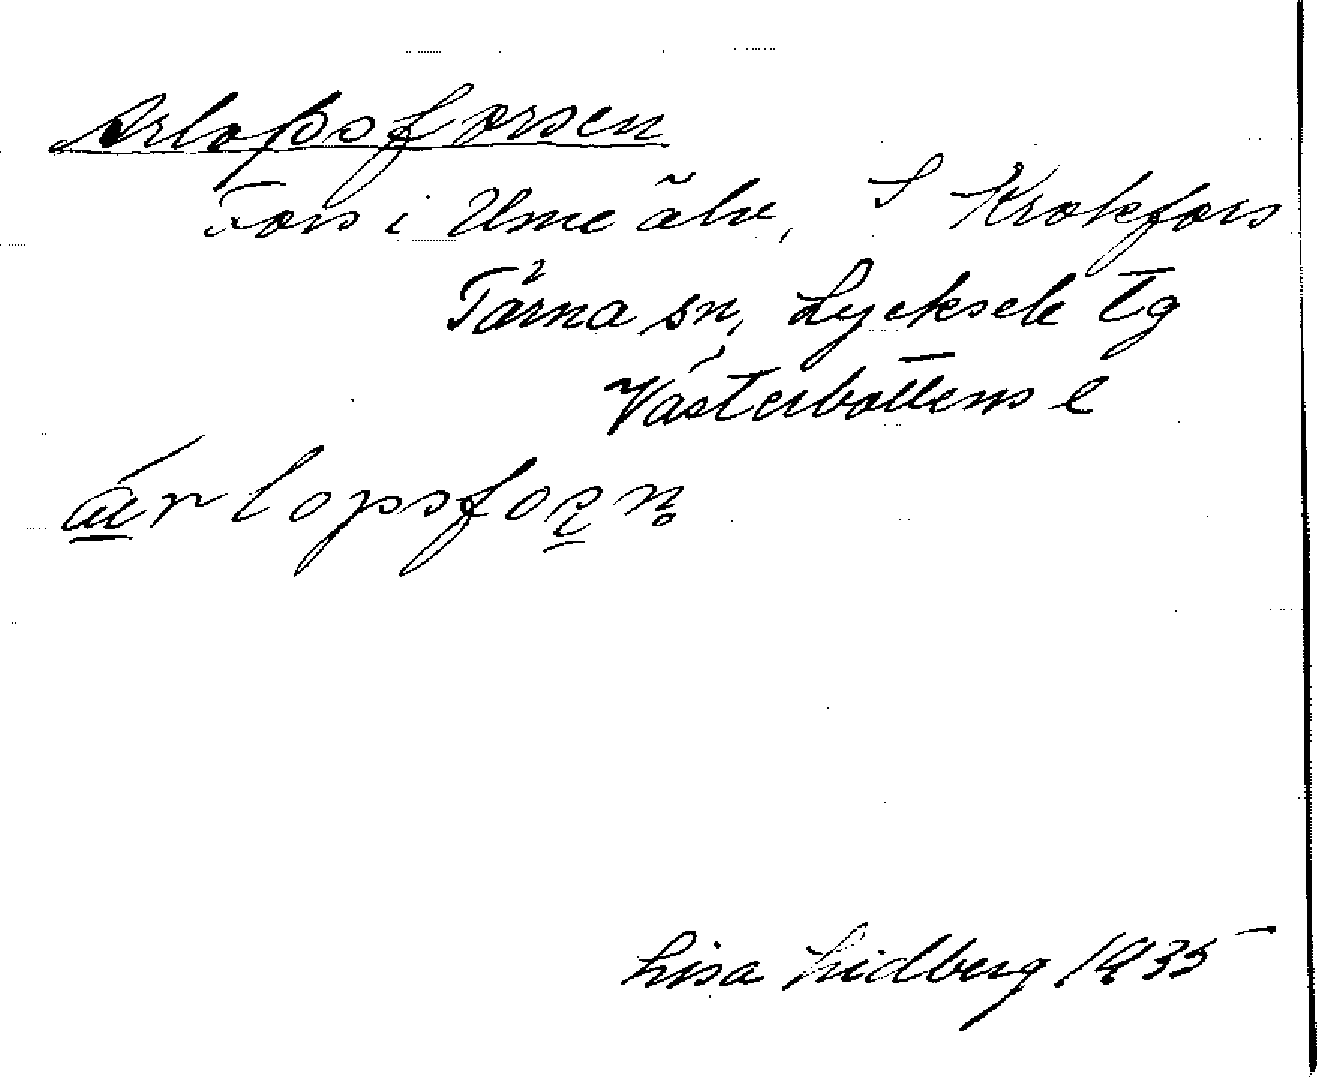 Arlopsforsen
Fors i Ume älv, S Krokfors
Tärna sn, Lycksele tg
Västerbottens l
ærlopsfoṣn̥
Lisa Lidberg 1935